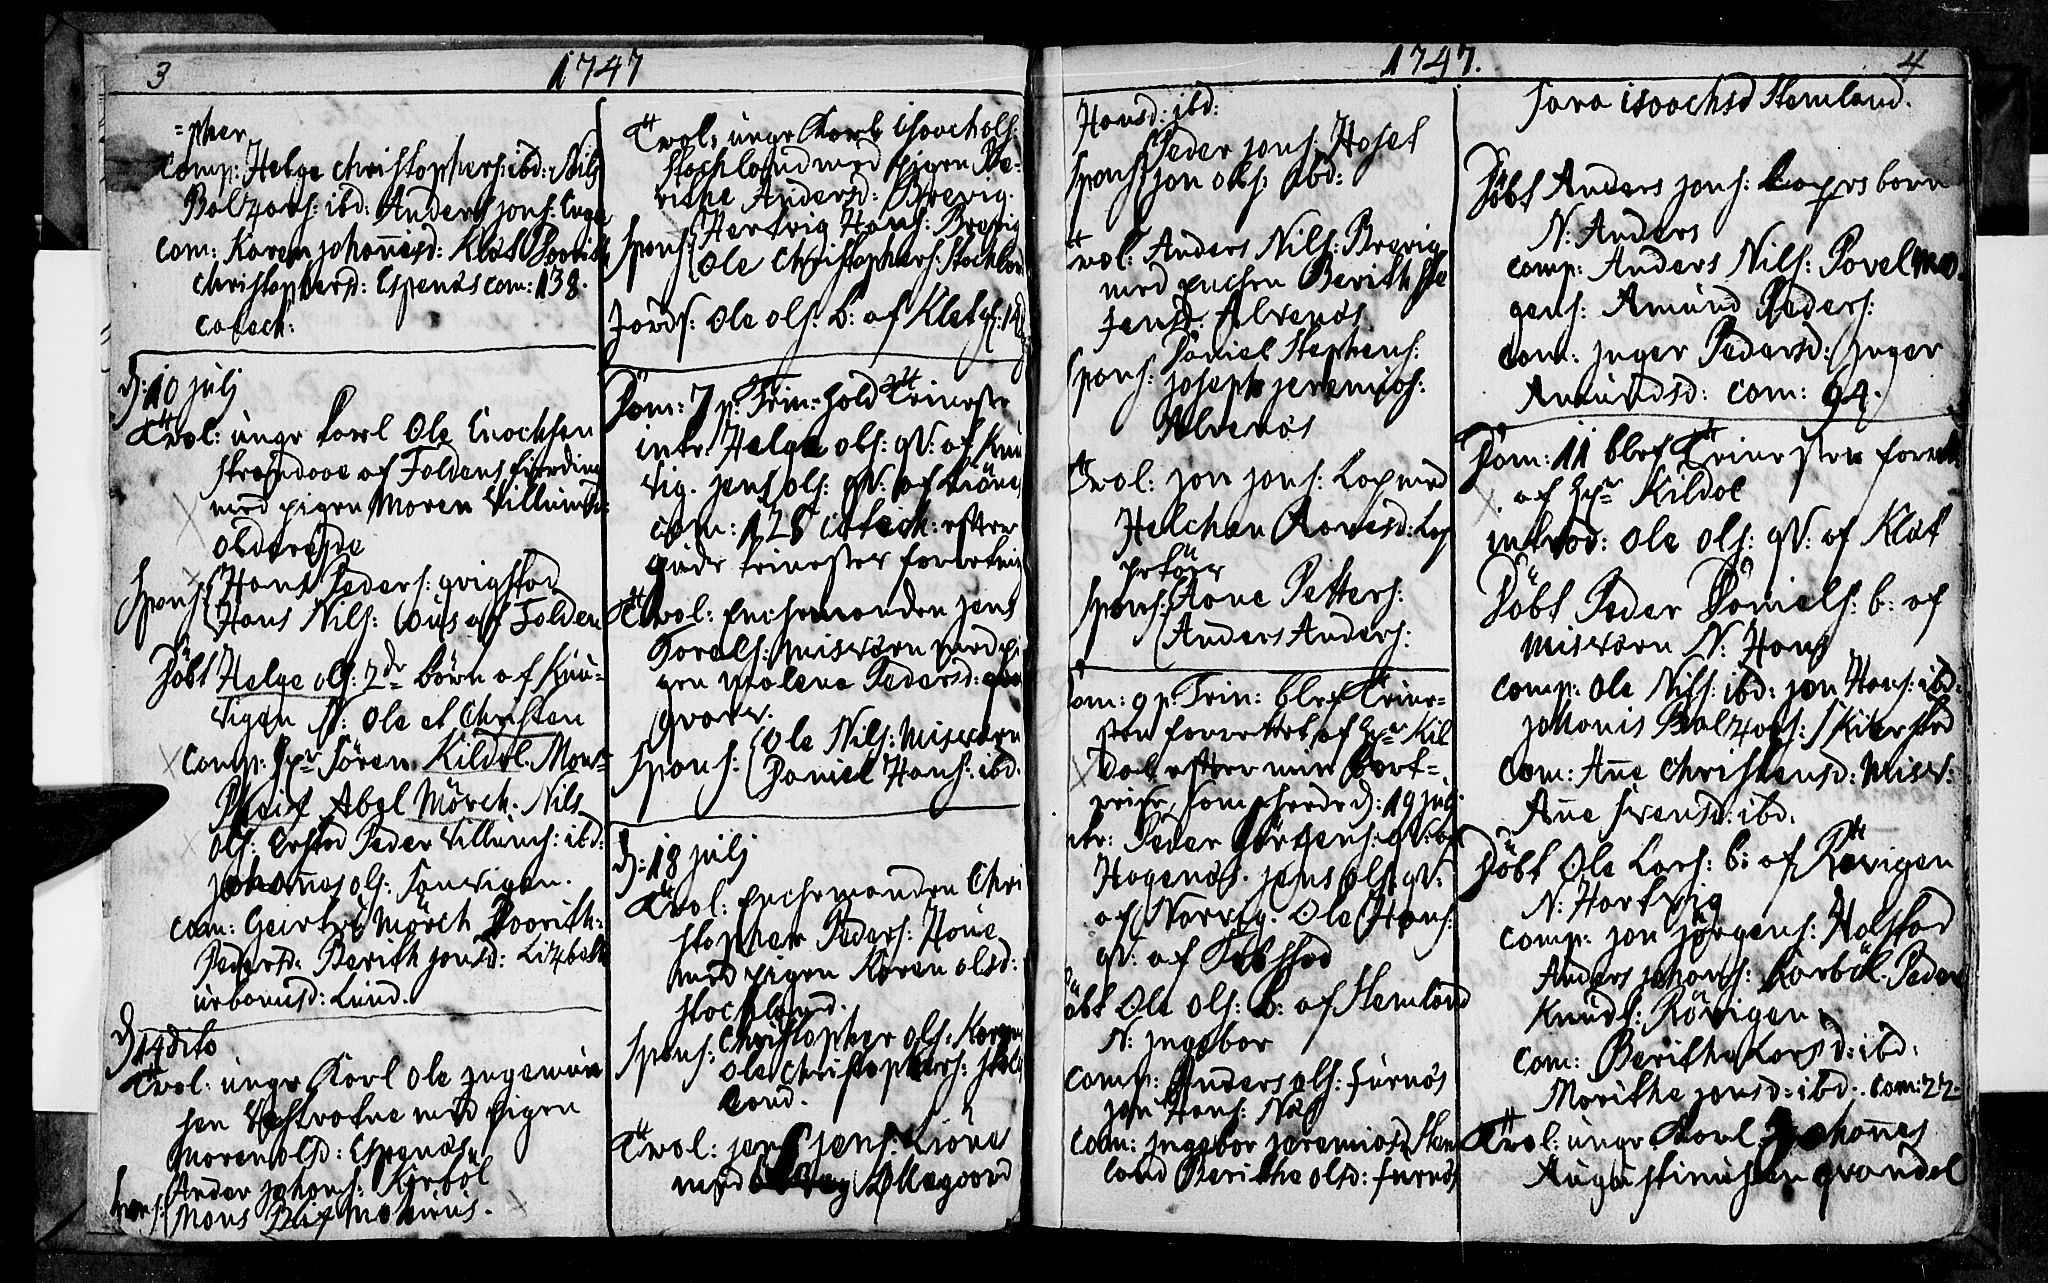 3
1747
=pher
Comp: Helge Christophers: ibd: Nils
Balzars: ibd: Anders jons:
Com: Karen johañisd: Klæt Doorith
Christophersd: Espenæs com: 138.
catech:
d: 10 julj
Trol: ungr Karl Ole Enochsen
Strøsndooe af Foldens fierding
med pigen Maren Villumsd:
oldereide
Spons: Hans Peders: qvigstad
Hans Nils: af Folden
Döbt Helge ols: 2de börn af Knu=
vigen N: Ole et Christen
Comp: Hr Sören Kildal. Mons:
Pheif Abel Mörch. Nils
ols: Erstad Peder Villums: ibd:
johañes ols: Sönvigen.
Com: Geirtru Mörch Doorith
Pedersd. Berith jonsd: Lizbeth
urbanusd: Lund.
d: 14 dito
Trol: ungr Karl Ole Ingemun
sen Vestvatne med pigen
Maren olsd: Espenæs
Spons: Ander johans: Kirböl
Mons Puf
Trol: ungr Karl Isaac ols:
Stochland med pigen Be=
rithe Andersd: Brevig.
Spons: Hertvig Hans: Brevig
Ole Christophers: Stochlan
Jords: Ole ols: b: af Klæt
Dom: 7 p. Trin: hold Tieneste
intr: Helge ols: qv: af Knu
vig. jens ols: qv: af Liönes
com: 128 catech: efter
guds tienester forretning
Trol: Enchemanden jens
Torels: Misvørn med pi
gen Malene Pedersd:
Spons: Ole Nils: Misvørn
Daniel Hans: ibd.
d: 18 julj
Trol: Enchemanden Chri
stopher Peders: Hone
med pigen Karen olsd:
Stochland.
Spons: Christopher ols:
Ole Christophers: Stoch
land.
Trol: jens jens: Liönes
med
1747.
4
Hansd: ibd:
Spons: Peder jons: Hoset
jon ols: ibd:
Trol: Anders Nils: Brevig
med enchen Berith Ste
fensd: Alvenæs
Spons: Daniel Stephens:
joseph jeremias:
Alvenæs
Trol: jon jons: Lop med
Helchen Aonesd: Lop
Spons: Aone Petters:
Anders Anders:
Dom: 9 p. Trin: blef Tiene=
sten forrettet af Hr Kil
dal efter min bort=
reise, som skeede d: 19 julj
intr: Peder Jörgens: qv: af
Hagenæs. jens ols: qv:
af Norvig. Ole Hans:
qv: af Tobstad
Döbt Ole ols: b: af Stemland
N: Ingebor
Comp: Anders ols: furnæs
jon Hans: Næs
Com: Ingebor jeremiasd: Stem
land Berithe olsd: furnæs
Sara isaachsd Stemland.
Döbt Anders jons: Lopes barn
N: Anders
Comp: Anders Nils: Povel Mo.
gens: Amund Peders:
Com: Inger Pedersd: Inger
Amundsd: com: 94.
Dom: 11 blef Tienesten forrett
af Hr Kildal
introd: Ole ols: qv: af Klæt
Döbt Peder Daniels: b: af
Misvørn N: Hans
Comp: Ole Nils: ibd: jon Hans: ibd:
johanis Balzars: Skiersted
Com: Añe Christensd: Misv:
Añe Svensd: ibd.
Döbt Ole Lars: b: af Rövigen
N: Hartvig
Comp: jon Jörgens: Halstad
Anders johans: Korböl. Peder
Knuds: Rövigen
Com: Berithe Larsd: ibd:
Marithe jonsd: ibd: com: 22
Trol: ungr Karl Johañes
Augustinusen qvandal